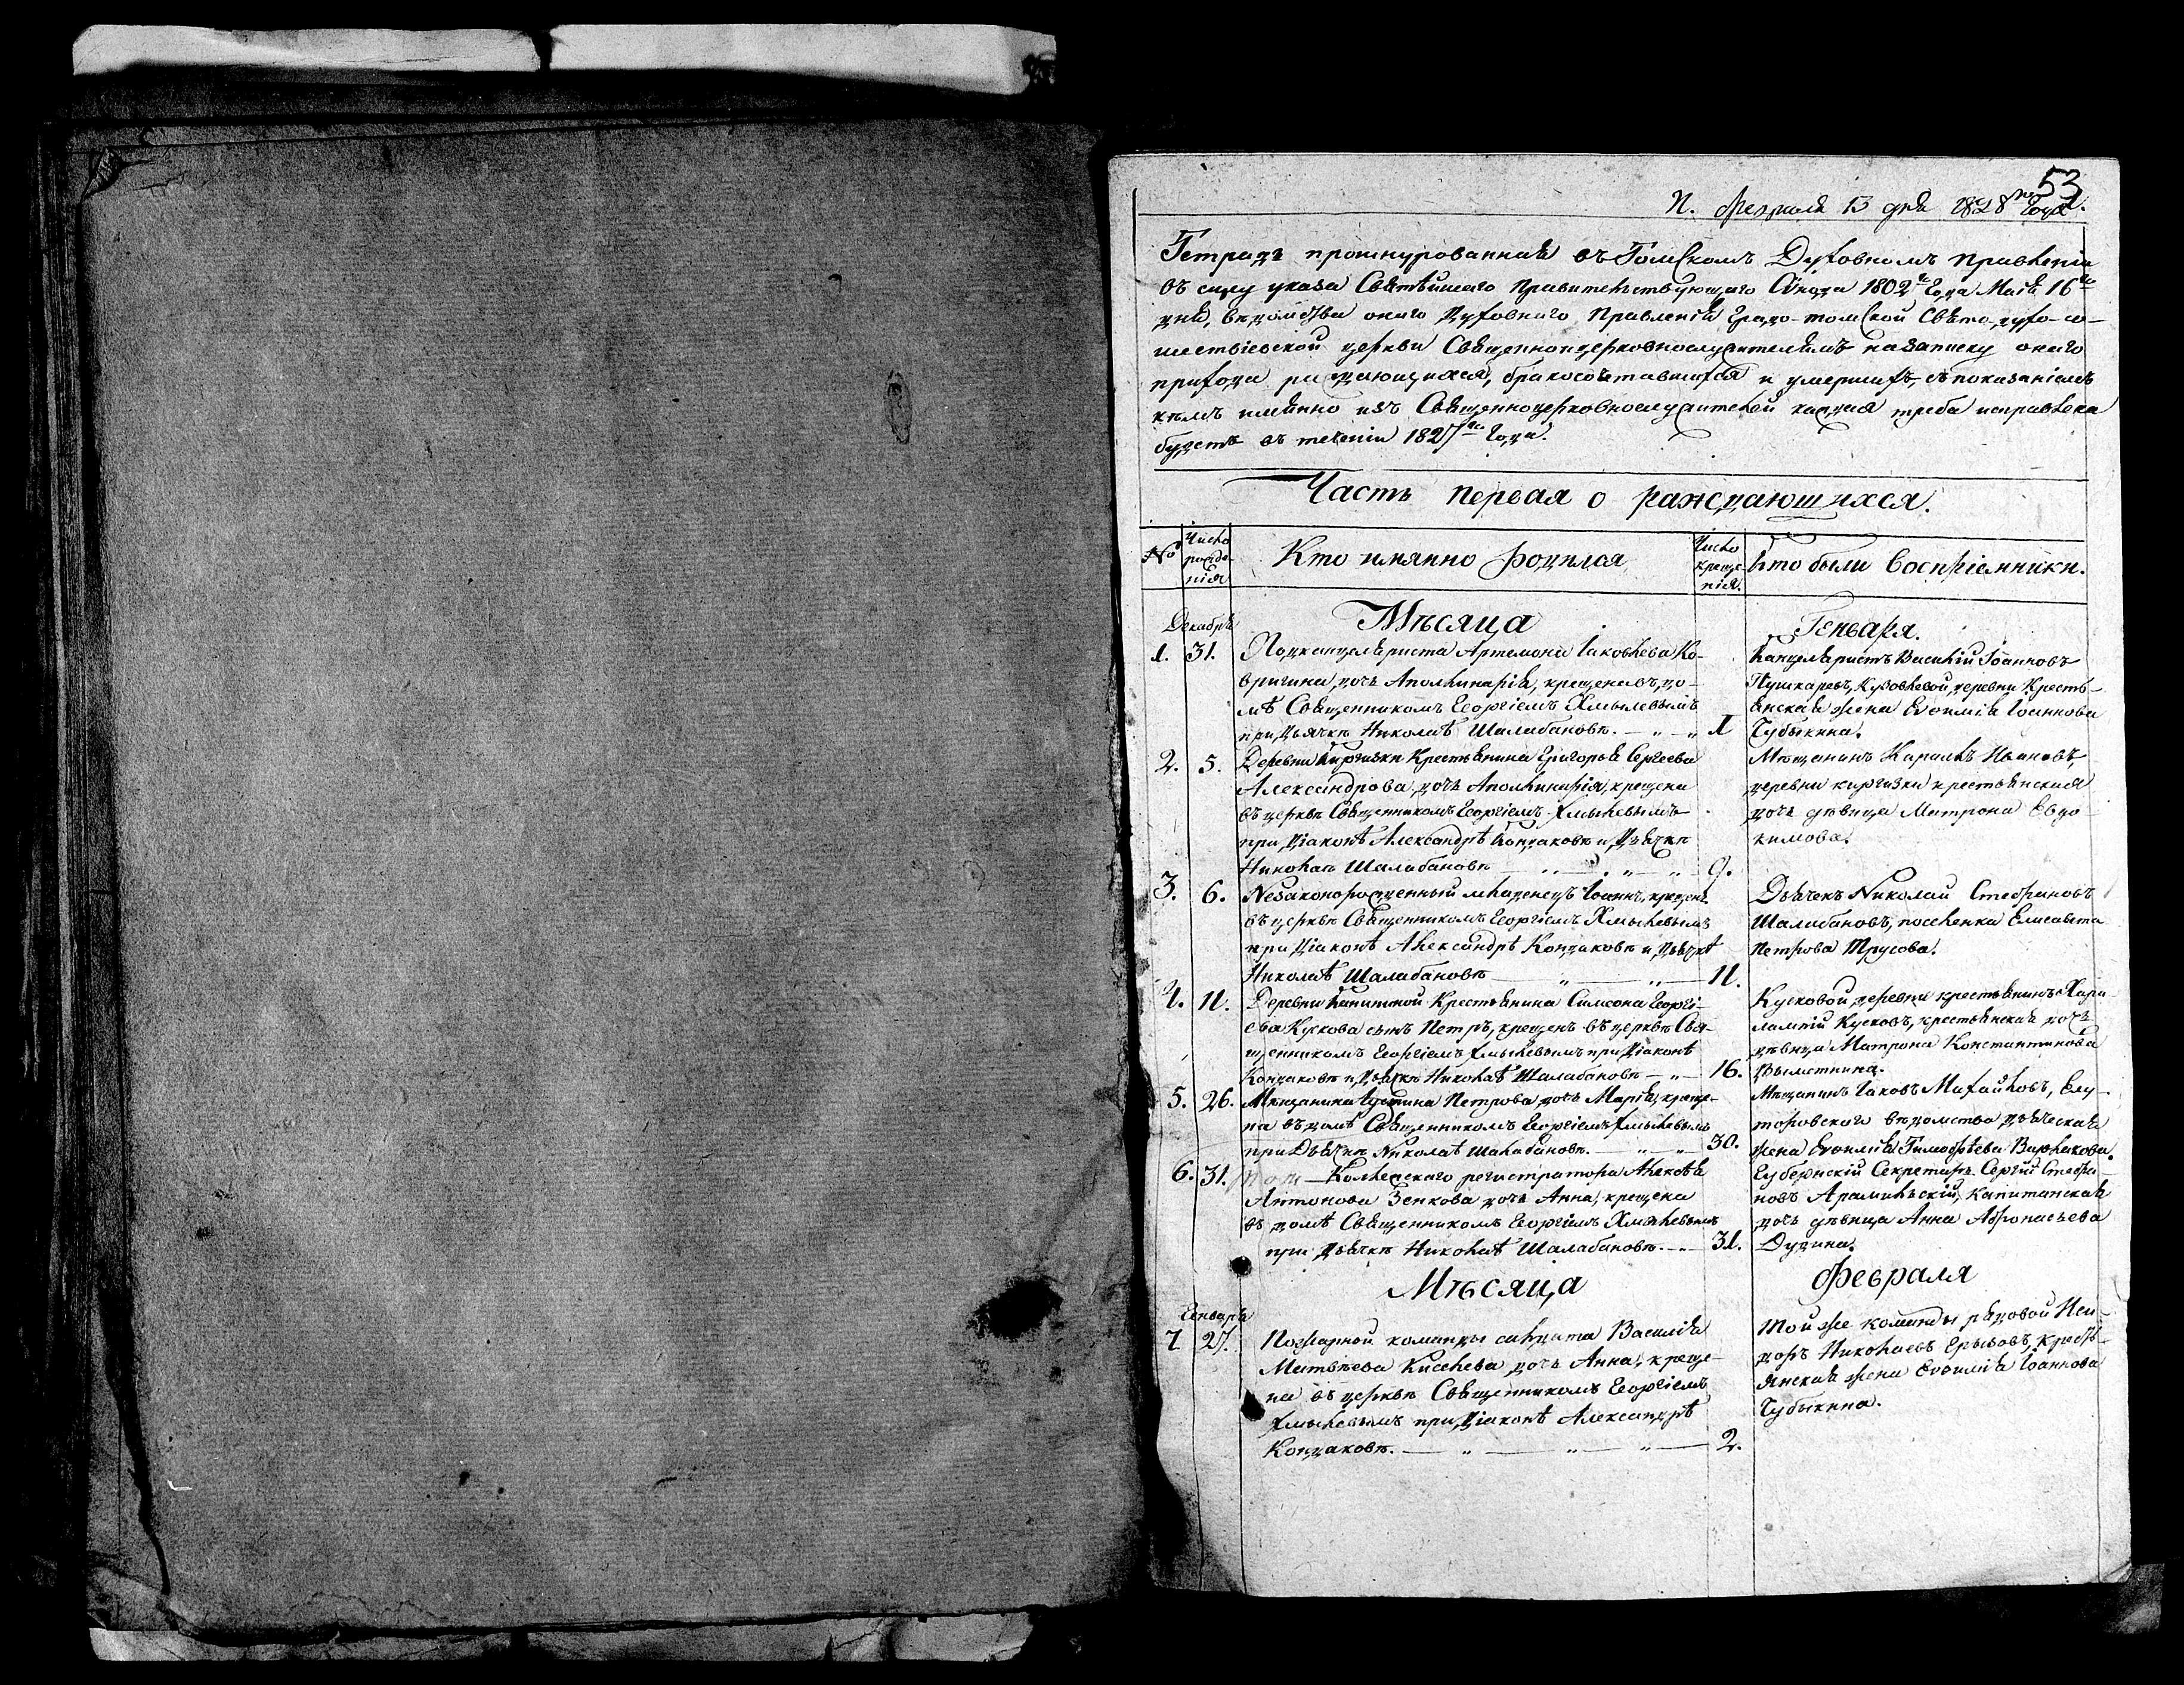 53
П. февраля 13 дня 1828го года.
Тетрадь прошнурованная въ Томскомъ Духовномъ Правленіи
въ силу указа Святѣйшаго Правительствующаго Сѵнода 1802го Года Маія 16го
дня, вѣдомства онаго Духовнаго Правленія Градо-томской Свято-духо-со-
шествіевской церкви Священноцерковнослужителямъ назаписку онаго
прихода раждающихся, бракосочетавшихся и умершихъ, съ показаніемъ
кѣмъ имянно изъ Священноцерковнослужителей каждая треба исправлена
будетъ въ теченіи 1827го Года.
Часть первая о раждающихся.
№
Число рожде-нія
Кто имянно родился
Число креще-нія.
Кто были Воспріемники.
Мѣсяца Генваря.
Декабрь
1. 31. Подканцеляриста Артемона Іаковлева Ко-
вригина, дочь Аполлинарія, крещена въ до-
мѣ Священникомъ Георгіемъ Хмылевымъ
при Дьячкѣ Николаѣ Шалабановѣ. 1
Канцеляристъ Василій Іоанновъ
Пушкаревъ, Кузовлевой деревни Кресть-
янская жена Евѳимія Іоаннова
Чубыкина.
2. 5. Деревни Киргизки Крестьянина Григорья Сергеева
Александрова, дочь Аполлинарія, крещена
въ церквѣ Священникомъ Георгіемъ Хмылевымъ
при Діаконѣ Александрѣ Кондаковѣ и Дьячкѣ
Николаѣ Шалабановѣ 9.
Мѣщанинъ Ивановъ,
деревни киргизки крестьянская
дочь дѣвица Матрона Евдо-
кимова.
3. 6. Незаконорожденный младенецъ Іоаннъ, крещенъ
въ церквѣ Священникомъ Георгіемъ Хмылевымъ
при Діаконѣ Александрѣ Кондаковѣ и Дьячкѣ
Николаѣ Шалабановѣ 11.
Дьячекъ Николай Стефановъ
Шалабановъ, поселенка Елисавета
Петрова Трусова.
4. 11. Деревни Крестьянина Симеона Георгі-
ева Кускова сынъ Петръ, крещенъ въ церквѣ Свя-
щенникомъ Георгіемъ Хмылевымъ при Діаконѣ
Кондаковѣ и Дьячкѣ Николаѣ Шалабановѣ 16.
Кусковой деревни крестьянинъ Хара-
лампій Кусковъ, крестьянская дочь
дѣвица Матрона Константинова
5. 26. Мѣщанина Іустина Петрова дочь Марія, креще-
на въ домѣ Священникомъ Георгіемъ Хмылевымъ
при Дьячкѣ Николаѣ Шалабановѣ. 30.
Мѣщанинъ Іаковъ Михайловъ, Елу-
торовскаго вѣдомства дьяческая
жена Евѳимія Тимофѣева Варлакова.
6. 31. Коллежскаго регистратора Алексѣя
Антонова Зенкова дочь Анна, крещена
въ домѣ Священникомъ Георгіемъ Хмылевымъ
при Дьячкѣ Николаѣ Шалабановѣ. 31.
Губернскій Секретарь Сергій Стефа-
новъ Арамильскій, Капитанская
дочь дѣвица Анна Афонасьева
Дудина.
Мѣсяца Февраля
Генварь
7 27. Пожарной команды салдата Василія
Матвѣева Киселева дочь Анна, креще-
на въ церквѣ Священникомъ Георгіемъ
Хмылевымъ при Діаконѣ Александрѣ
Кондаковѣ. 2.
Той же команды рядовой Иси-
доръ Николаевъ Ерыковъ, Кресть-
янская жена Евѳимія Іоаннова
Чубыкина.